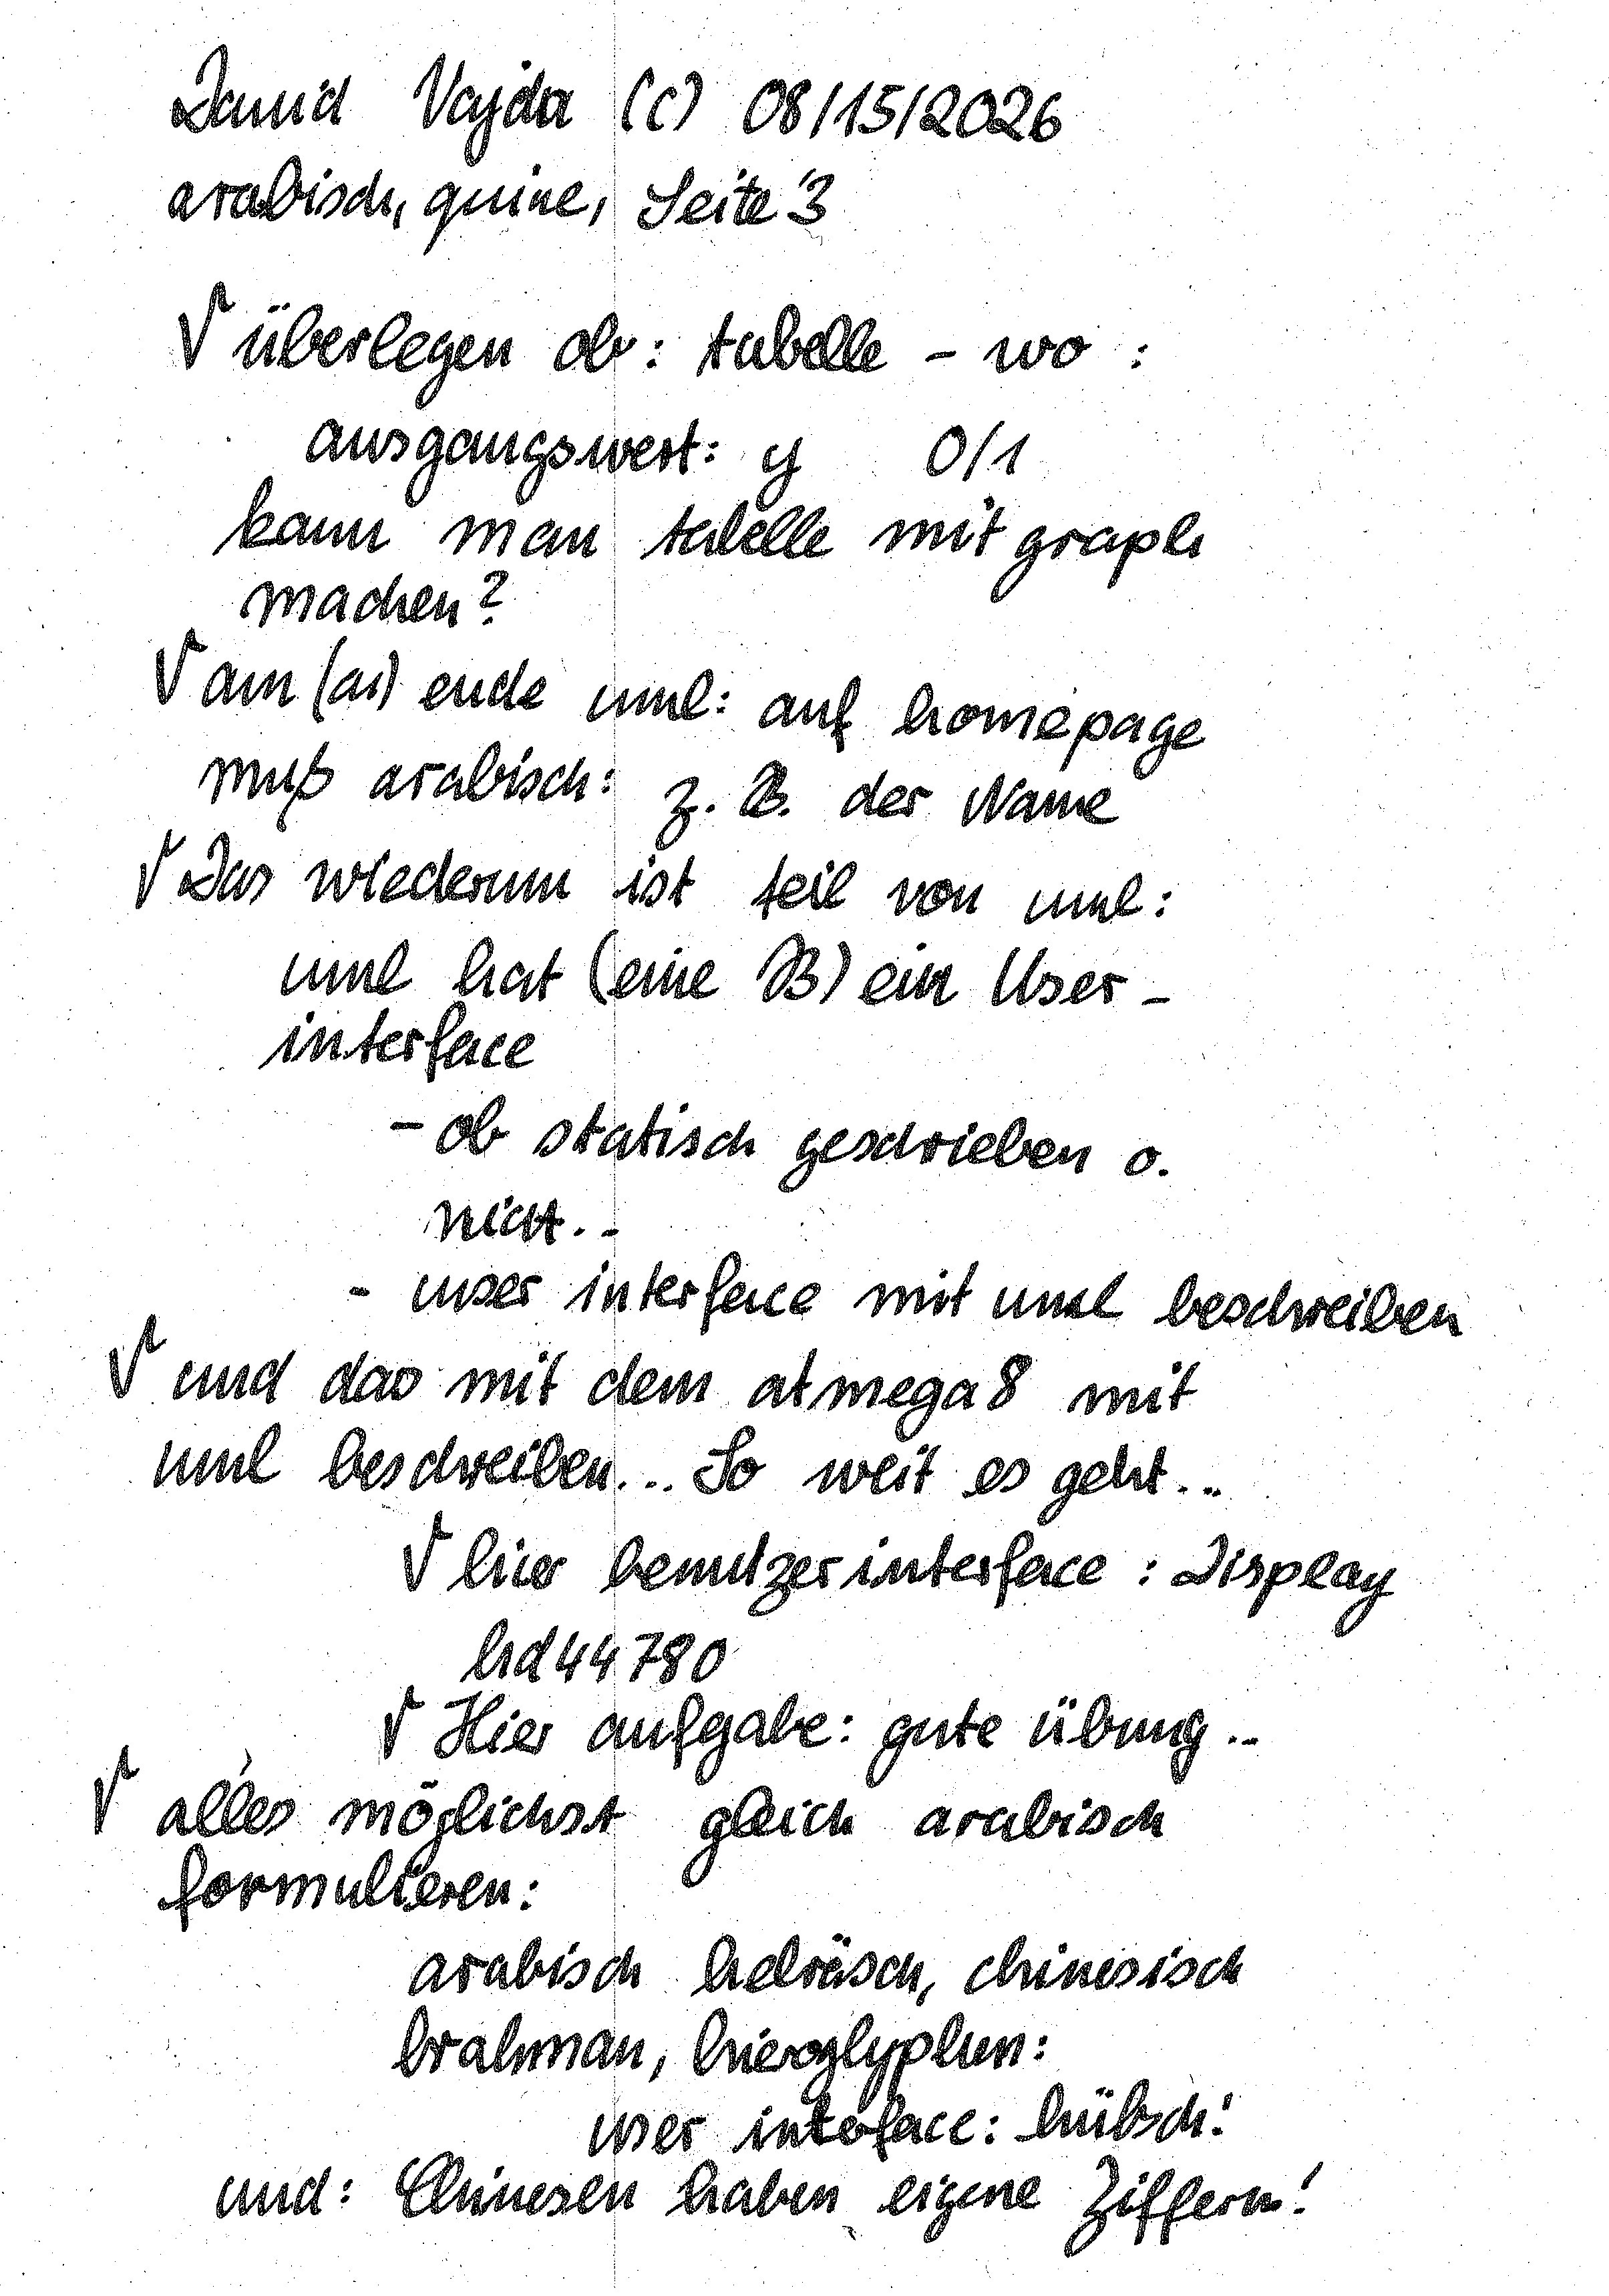 David Vajda (c) 08/15/2026
arabisch, quine, Seite 3
√ überlegen ob: tabelle - wo :
ausgangswert: y 0/1
kann man tabelle mit graph
machen?
√ am (an) ende uml: auf homepage
muß arabisch: z. B. der Name
√ Das wiederum ist teil von uml:
uml hat (eine B) ein User-
interface
- ob statisch geschrieben o.
nicht..
- user interface mit uml beschreiben
√ und das mit dem atmega8 mit
uml beschreiben... So weit es geht...
√ hier benutzerinterface : Display
hd44780
√ Hier aufgabe: gute übung ..
√ alles möglichst gleich arabisch
formulieren:
arabisch hebräisch, chinesisch
brahman, hieroglyphen:
user inteface: hübsch!
und: Chinesen haben eigene Ziffern!